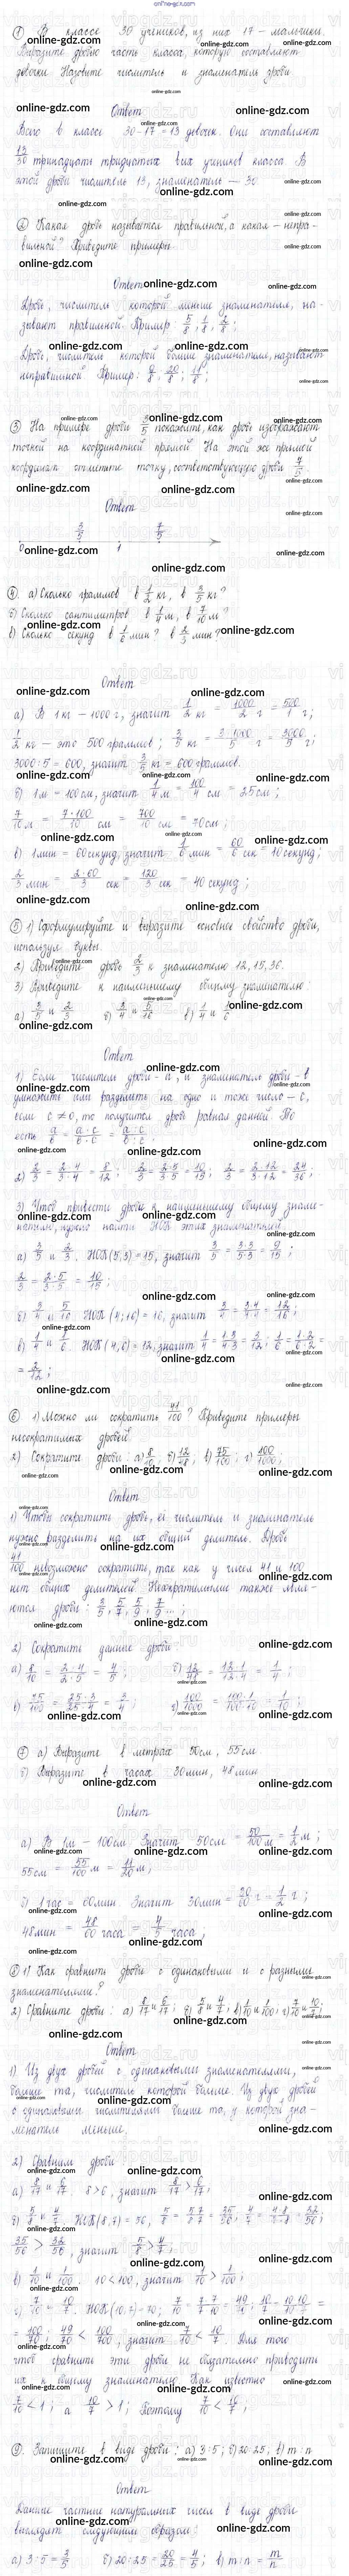 online-gdz.com
① В классе 30 учеников, из них 17 – мальчики.
Выразите дробью часть класса, которую составляют
девочки. Назовите числитель и знаменатель дроби
Ответ
Всего в классе 30 – 17 = 13 девочек. Они составляют
13/30 тринадцать тридцатых всех учеников класса. В
этой дроби числитель 13, знаменатель — 30
② Какая дробь называется правильной, а какая – непра-
вильной? Приведите примеры.
Ответ
Дробь, числитель которой меньше знаменателя, на-
зывают правильной. Пример: 5/8; 1/8; 2/8;
Дробь, числитель которой больше знаменателя, называют
неправильной. Пример: 20/8; 11/8;
③ На примере дроби 3/5 покажите, как дробь изображают
точкой на координатной прямой. На этой же прямой
отметьте точку, соответствующую дроби 7/5.
Ответ
3/5 7/5
0 1
④. а) Сколько граммов в 1/2 кг, в 3/5 кг?
б) Сколько сантиметров в 1/4 м, в 7/10 м?
в) Сколько секунд в 1/6 мин? в 2/3 мин?
Ответ
а) В 1 кг – 1000 г, значит 1/2 кг = 1000/2 г = 500/1 г;
1/2 кг – это 500 граммов; 3/5 кг = 3·1000/5 г = 3000/5 г;
3000 : 5 = 600, значит 3/5 кг = 600 граммов.
б) 1м = 100 см, значит 1/4 м = 100/4 см = 25 см;
7/10 м = 7·100/10 см = 700/10 см = 70 см;
в) 1 мин = 60 секунд, значит 1/6 мин = 60/6 сек = 10 секунд;
2/3 мин = 2·60/3 сек = 120/3 сек = 40 секунд;
⑤ 1) Сформулируйте и выразите основное свойство дроби,
используя буквы.
2) Приведите дробь 2/3 к знаменателю 12, 15, 36.
3) Приведите к наименьшему общему знаменателю:
а) 3/5 и 2/3 б) 3/4 и 5/16 в) 1/4 и 1/6
Ответ
1) Если числитель дроби – а, и знаменатель дроби – в
умножить или разделить на одно и тоже число – с,
если с ≠ 0, то получится дробь равная данной. То
есть а/в = а·с/в·с = а:с/в:с.
2) 2/3 = 2·4/3·4 = 8/12; 2/3 = 2·5/3·5 = 10/15; 2/3 = 2·12/3·12 = 24/36;
3) Чтоб привести дробь к наименьшему общему знаме-
нателю, нужно найти НОК этих знаменателей
а) 3/5 и 2/3. НОК(5,3) = 15, значит 3/5 = 3·3/5·3 = 9/15;
2/3 = 2·5/3·5 = 10/15;
б) 3/4 и 5/16 НОК(4;16) = 16, значит 3/4 = 3·4/4·4 = 12/16;
в) 1/4 и 1/6. НОК(4,6) = 12, значит 1/4 = 1·3/4·3 = 3/12; 1/6 = 1·2/6·2 =
= 2/12;
⑥ 1) Можно ли сократить 41/100? Приведите примеры
несократимых дробей.
2) Сократите дроби: а) 8/10 б) 12/48, в) 75/100; г) 100/1000;
Ответ
1) Чтобы сократить дробь, её числитель и знаменатель
нужно разделить на их общий делитель. Дробь
41/100 невозможно сократить, так как у чисел 41 и 100
нет общих делителей. Несократимыми также явля-
ются дроби: 3/5; 5/7; 5/9; 7/9 ...;
2) Сократить данные дроби
а) 8/10 = 2·4/2·5 = 4/5; б) 12/48 = 12·1/12·4 = 1/4;
в) 75/100 = 25·3/25·4 = 3/4; г) 100/1000 = 100·1/100·10 = 1/10;
⑦ а) Выразите в метрах 50см, 55см.
б) Выразите в часах 30мин, 48мин
Ответ
а) В 1м – 100см Значит 50см = 50/100 м = 1/2 м;
55см = 55/100 м = 11/20 м;
б) 1 час = 60мин. Значит 30мин = 30/60 ч = 1/2 ч;
48мин = 48/60 часа = 4/5 часа,
⑧ 1) Как сравнить дроби с одинаковыми и с разными
знаменателями?
2) Сравните дроби: а) 8/17 и 6/17; б) 5/8 и 4/7; в) 1/10 и 1/100; г) 7/10 и 10/7;
Ответ
1) Из двух дробей с одинаковыми знаменателями,
больше та, числитель которой больше. Из двух дробей
с одинаковыми числителями больше та, у которой зна-
менатель меньше.
2) Сравним дроби
а) 8/17 и 6/17. 8 > 6, значит 8/17 > 6/17;
б) 5/8 и 4/7. НОК(8,7) = 56, 5/8 = 5·7/8·7 = 35/56; 4/7 = 4·8/7·8 = 32/56;
35/56 > 32/56, значит 5/8 > 4/7;
в) 1/10 и 1/100. 10 < 100, значит 1/10 > 1/100;
г) 7/10 и 10/7. НОК(10,7) = 70; 7/10 = 7·7/7·10 = 49/70; 10/7 = 10·10/7·10 =
= 100/70; 49/70 < 100/70, значит 7/10 < 10/7 Для того
чтоб сравнить эти дроби не обязательно приводить
их к общему знаменателю Как известно
7/10 < 1; а 10/7 > 1; Поэтому 7/10 < 10/7;
⑨. Запишите в виде дроби: а) 3:5; б) 20:25, в) m:n
Ответ
Данные частные натуральных чисел в виде дроби
выглядят следующим образом:
а) 3:5 = 3/5 б) 20:25 = 20/25 = 4/5; в) m:n = m/n